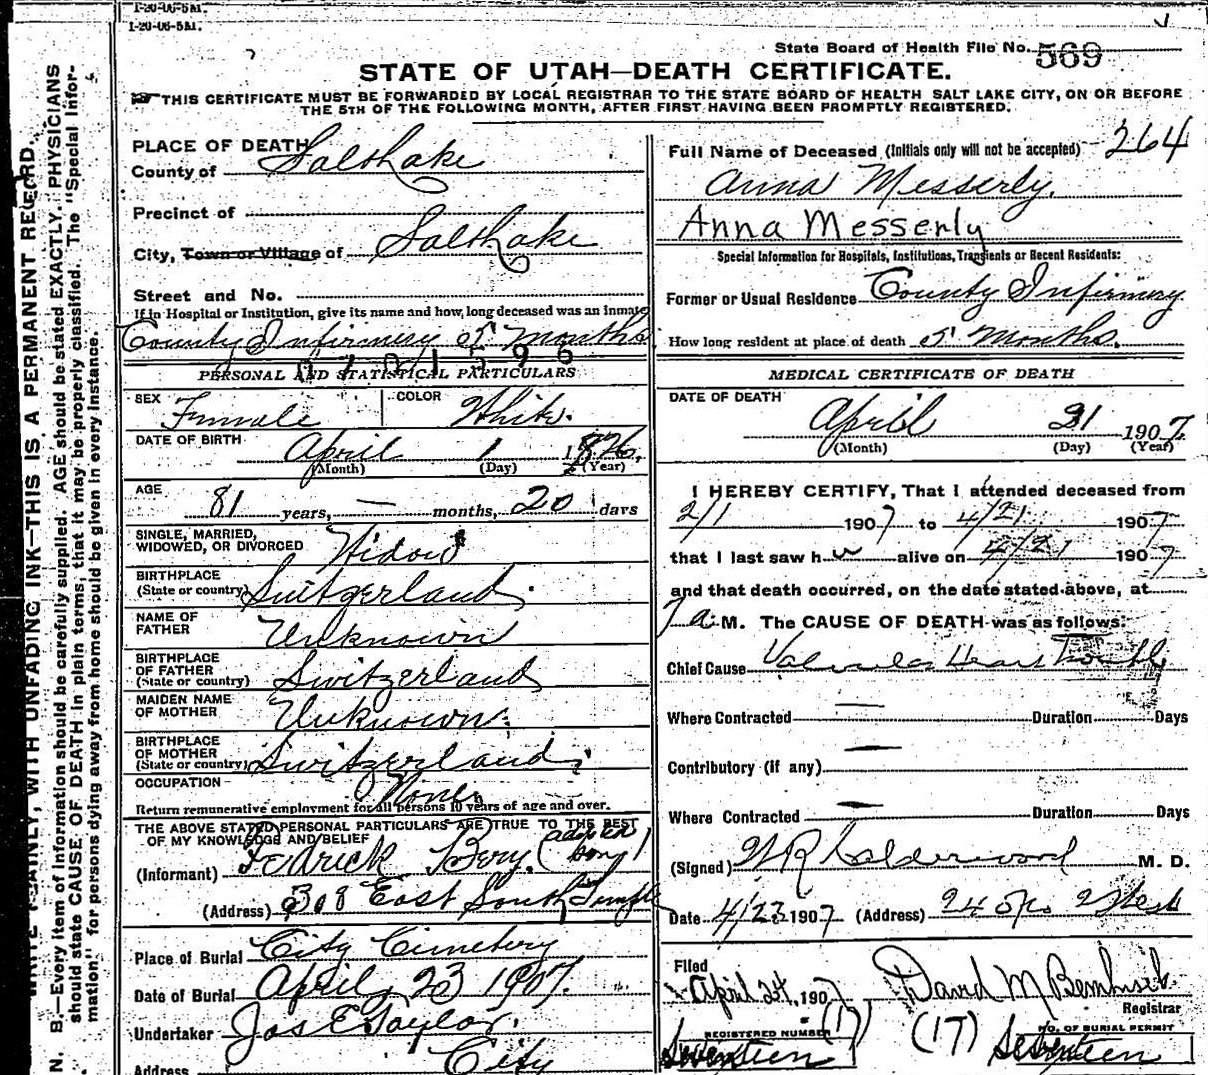 1-20-06-5M.
1-20-06-5M.
State Board of Health File No. 569
STATE OF UTAH—DEATH CERTIFICATE.
THIS CERTIFICATE MUST BE FORWARDED BY LOCAL REGISTRAR TO THE STATE BOARD OF HEALTH SALT LAKE CITY, ON OR BEFORE
THE 5TH OF THE FOLLOWING MONTH, AFTER FIRST HAVING BEEN PROMPTLY REGISTERED.
WRITE PLAINLY, WITH UNFADING INK—THIS IS A PERMANENT RECORD.
N. B.—Every item of information should be carefully supplied. AGE should be stated EXACTLY. PHYSICIANS
should state CAUSE OF DEATH in plain terms, that it may be properly classified. The "Special Infor-
mation" for persons dying away from home should be given in every instance.
PLACE OF DEATH
County of Salt Lake
Precinct of
City, Town or Village of Salt Lake
Street and No.
If in Hospital or Institution, give its name and how long deceased was an inmate
County Infirmery 5 Months
PERSONAL AND STATISTICAL PARTICULARS
SEX Female COLOR White.
DATE OF BIRTH April 1 1826
(Month) (Day) (Year)
AGE 81 years, — months, 20 days
SINGLE, MARRIED,
WIDOWED, OR DIVORCED Widow
BIRTHPLACE
(State or country) Switzerland.
NAME OF
FATHER Unknown
BIRTHPLACE
OF FATHER
(State or country) Switzerland
MAIDEN NAME
OF MOTHER Unknown.
BIRTHPLACE
OF MOTHER
(State or country) Switzerland
OCCUPATION None
Return remunerative employment for all persons 10 years of age and over.
THE ABOVE STATED PERSONAL PARTICULARS ARE TRUE TO THE BEST
OF MY KNOWLEDGE AND BELIEF
(Informant) Fedrick Bery.
(Address) 308 East South Temple
Place of Burial City Cimetery
Date of Burial April 23 1907.
Undertaker Jos E Taylor.
Address City
Full Name of Deceased (Initials only will not be accepted) 264
Anna Messerly.
Anna Messerly
Special Information for Hospitals, Institutions, Transients or Recent Residents:
Former or Usual Residence County Infirmery
How long resident at place of death 5 Months.
MEDICAL CERTIFICATE OF DEATH
DATE OF DEATH
April 21 1907
(Month) (Day) (Year)
I HEREBY CERTIFY, That I attended deceased from
2/1 1907 to 4/21 1907
that I last saw her alive on 4/21 1907
and that death occurred, on the date stated above, at
7 a. M. The CAUSE OF DEATH was as follows:
Chief Cause Valvular Heart Trouble
Where Contracted — Duration Days
Contributory (if any) —
Where Contracted — Duration Days
(Signed) W R Calderwood M. D.
Date 4/23 1907 (Address)
Filed
April 24, 1907 David M
Registrar
REGISTERED NUMBER (17) (17) NO. OF BURIAL PERMIT
Seventeen Seventeen